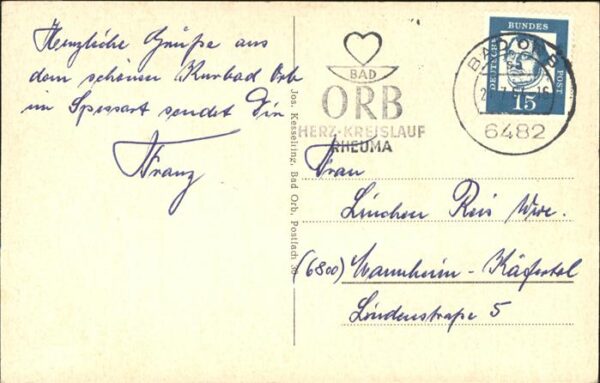 Herzliche Grüße aus
dem schönen Kurbad Orb
im Spessart sendet Dir
Franz
Jos. Kesselring, Bad Orb, Postfach 38
BAD
ORB
HERZ·KREISLAUF
RHEUMA
BAD ORB
6482
DEUTSCHE
BUNDES
POST
15
Frau
Linchen Reis Wwe.
(6800) Mannheim-Käfertal
Lindenstraße 5